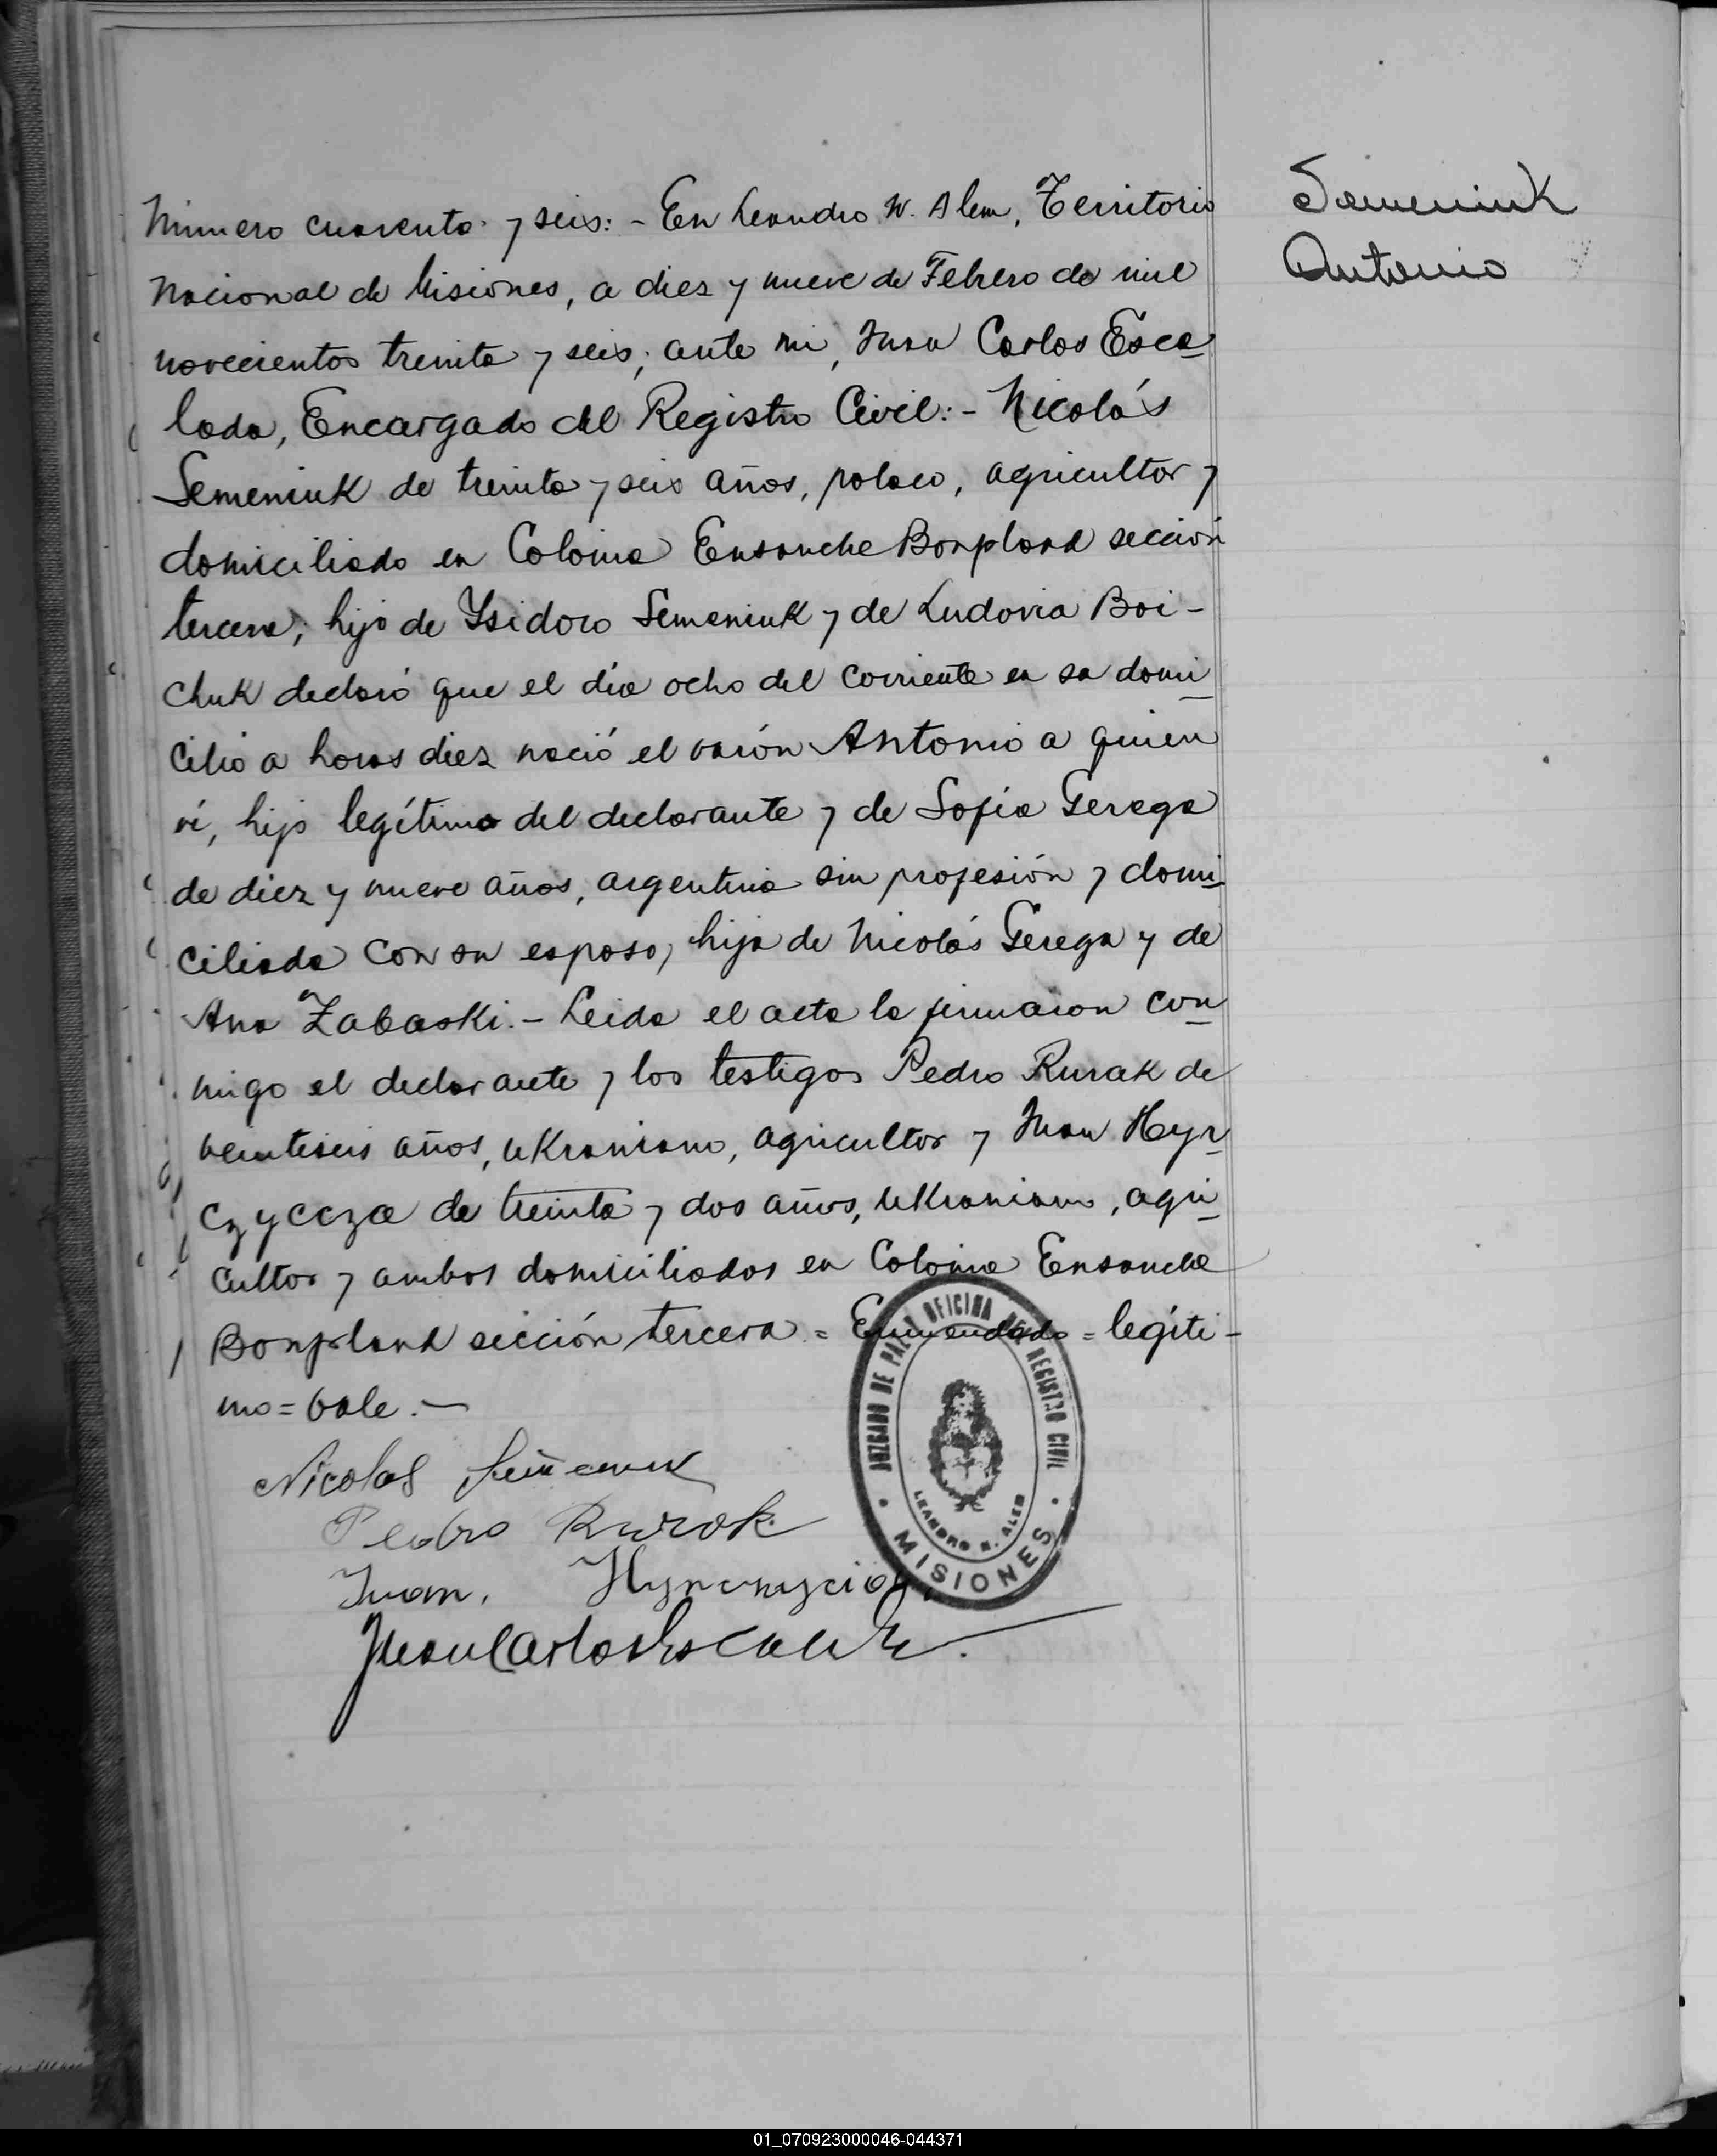 Número cuarenta y seis: - En Leandro N. Alem, Territorio
Nacional de Misiones, a diez y nueve de Febrero de mil
novecientos treinta y seis, ante mi, Juan Carlos Esca
lada, Encargado del Registro Civil: - Nicolás
Semeniuk de treinta y seis años, polaco, agricultor y
domiciliado en Colonia Ensanche Bonpland sección
tercera, hijo de Ysidoro Semeniuk y de Ludovia Boi-
chuk declaró que el día ocho del corriente en su domi
cilio a horas diez nació el varón Antonio a quien
ví, hijo legítimo del declarante y de Sofía Gerega
de diez y nueve años, argentina sin profesión y domi
ciliada con su esposo, hija de Nicolás Gerega y de
Ana Zabaski. - Leida el acta la firmaron con
migo el declarante y los testigos Pedro Rurak de
veintiseis años, ukraniano, agricultor y Juan Hyr
czycza de treinta y dos años, ukraniano, agri
cultor y ambos domiciliados en Colonia Ensanche
Bonpland sección tercera = Enmendado = legíti-
mo = vale. -
Semeniuk
Antonio
Nicolas
Pedro Rurak
Juan.
Juan Carlos Escalada
JUZGADO DE PAZ Y OFICINA DEL REGISTRO CIVIL
LEANDRO N. ALEM
MISIONES
01_070923000046-044371